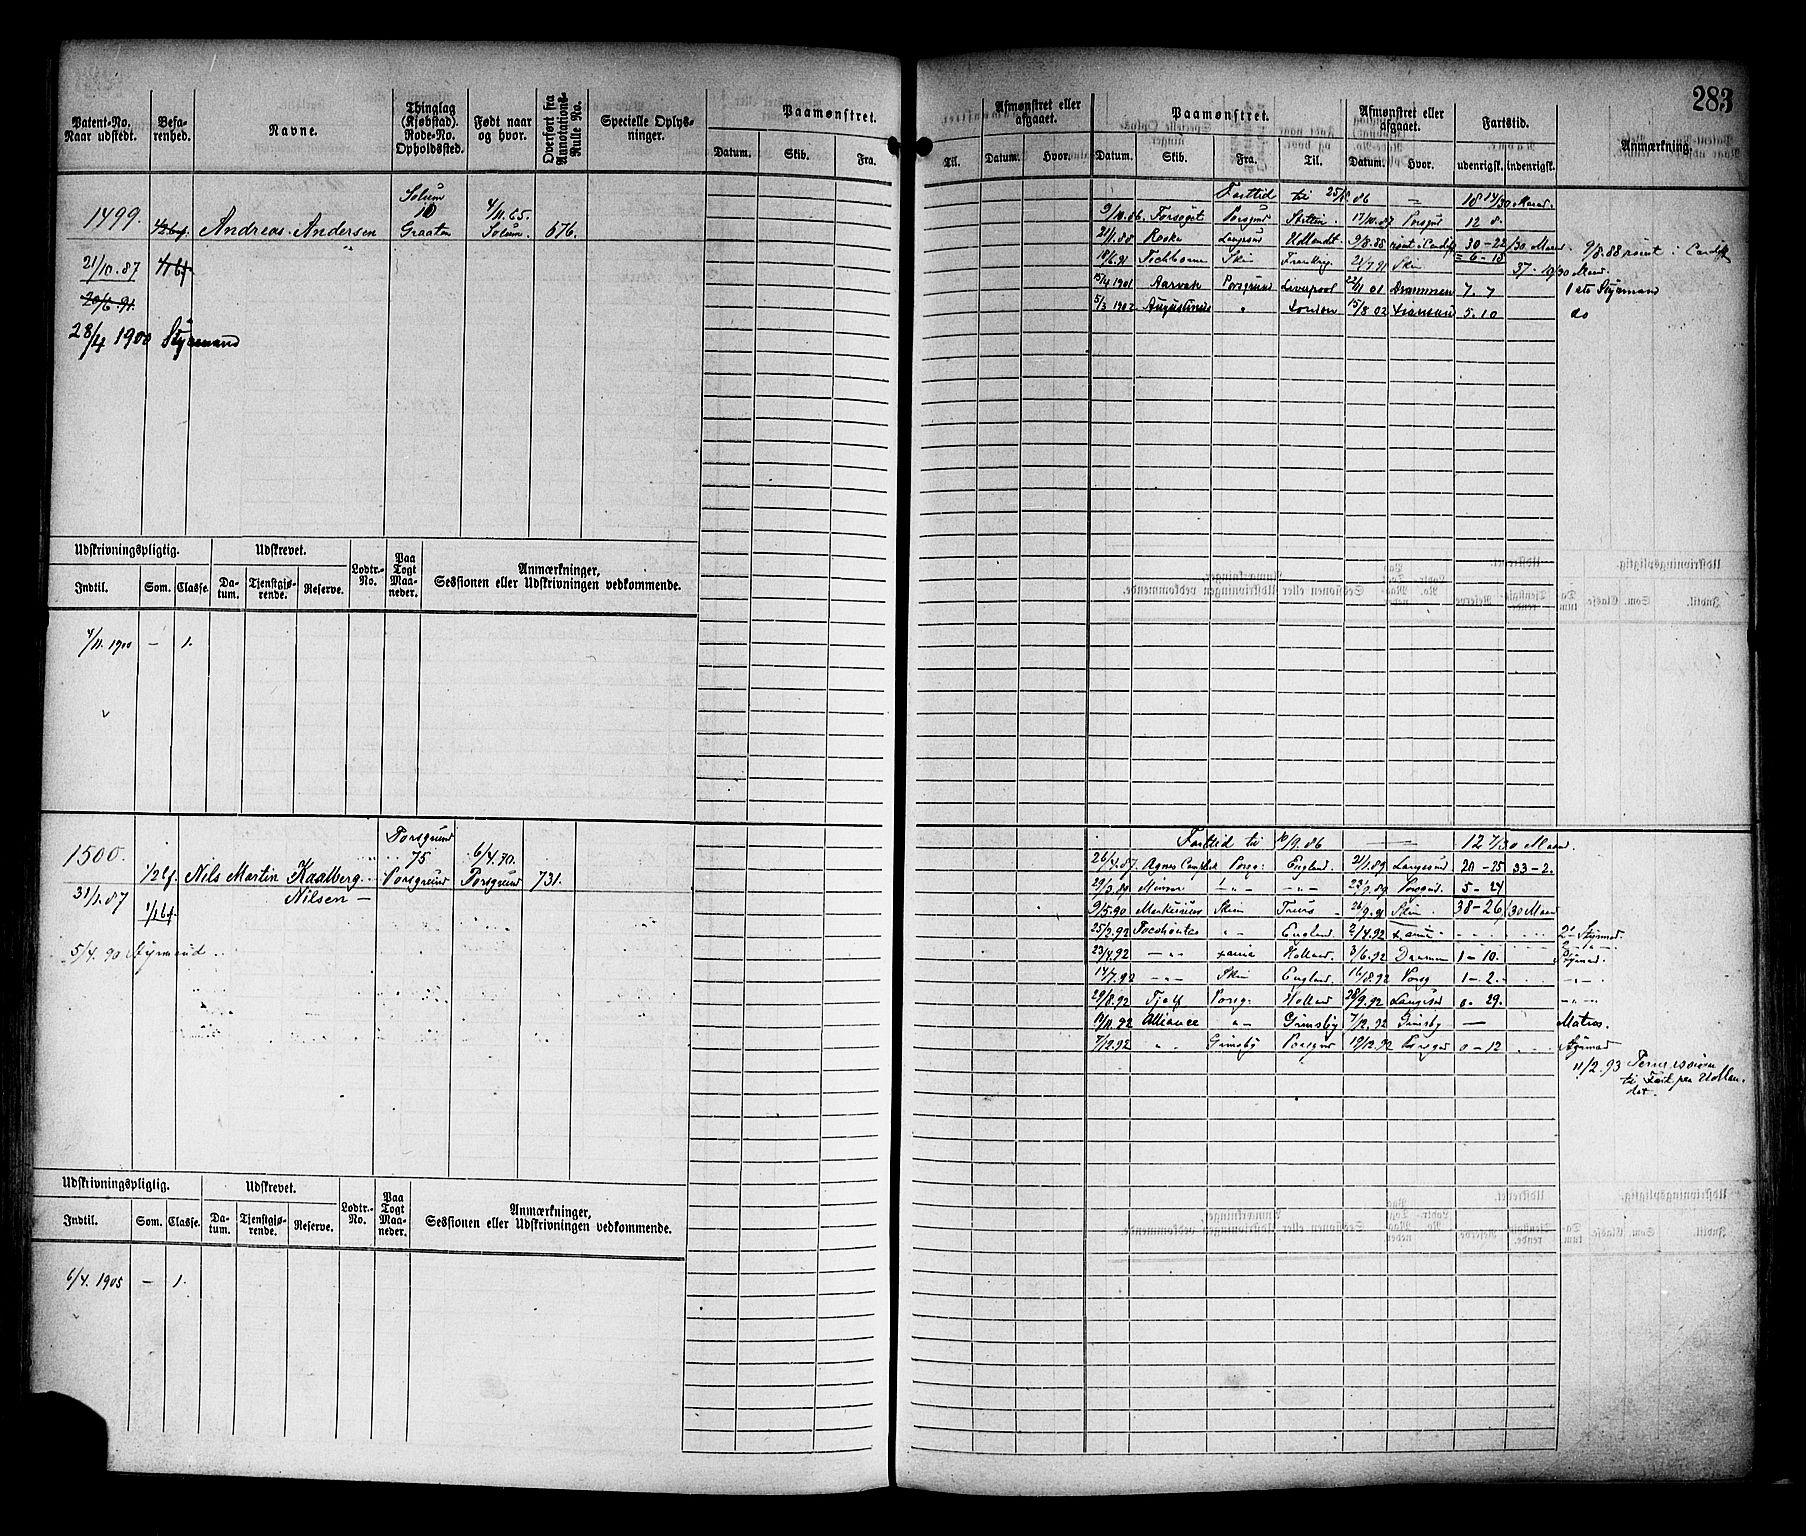 283
Patent-No. Naar udstedt. | Befarenhed. | Navne. | Thinglag (Kjøbstad). Rode-No. Opholdssted. | Født naar og hvor. | Overført fra Annotations-Rulle No. | Specielle Oplysninger. | Paamønstret. | Afmønstret eller afgaaet. | Paamønstret. | Afmønstret eller afgaaet. | Fartstid. | Anmærkning.
Datum. | Skib. | Fra. | Til. | Datum. | Hvor. | Datum. | Skib. | Fra. | Til. | Datum. | Hvor. | udenrigsk. | indenrigsk.
1499. | Andreas Andersen | Solum 10 Graaten | 4/11.65. Solum | 676.
21/10.87
20/6.91.
28/4 1900 Styrmand
Farttid til 25/10.86 | — | 18 14/30 Maaned.
9/11.86. | Forsøget | Porsgrd | Stettin. | 17/10.87 | Porsgrd | 12 8.
21/1.88 | Langesund | Udlandt. | 9/8.88 | rømt i Cardiff | 30-22/30 Maaned | 9/8.88 rømt i Cardiff
18/6.91 | Skien | Frankrg. | 21/7 91 | Skien | = 6-18 | 37-19/30 Maaned.
15/4 1901 | Aarvak | Porsgrund | Liverpool | 22/11 01 | Drammen | 7. 7 | 1ste Styrmand
5/3 1902 | Augustinus | " | London | 15/8 02 | 5.10 | do
Udskrivningspligtig. | Udskrevet. | Lodtr.-No. | Paa Togt Maaneder. | Anmærkninger, Sessionen eller Udskrivningen vedkommende.
Indtil. | Som. | Classe. | Datum. | Tjenstgjørende. | Reserve.
4/11.1900 | — | 1.
1500. | 1/2 bf. | Nils Martin Kaalberg Nilsen — | Porsgrund 75 Porsgrund | 6/4.70. Porsgrund | 731.
31/1.87 | 1/1 bf.
5/4.90 Styrmand
Farttid til 10/9.86 | — | — | 12 7/30 Maaned.
26/4.87. | Agnes Campbell | Porsg. | England. | 21/1.89 | Langesund | 20-25 | 33-2.
29/3.89 | Minver | -"- | -"- | 22/9.89 | Porsgrd. | 5-24
9/5.90 | Merkurius | Skien | 26/9.91 | Skien. | 38-26/30 Maaned
25/2.92 | Pocohontas | -"- | England. | 2/4.92 | 2den Styrmad.
23/4.92 | -"- | Holland. | 3/6.92 | Drammen | 1-10. | Styrmad.
14/7.92 | -"- | Skien | England. | 16/8.92 | Porsg | 1-2. | -"-
29/8.92 | Tjalf | Porsg. | Holland | 28/9.92 | Langesd | 0-29. | -"-
12/11.92 | Alliance | -"- | Grimsby | 7/12.92 | Grimsby | — | Matros.
7/12.92 | " | Grimsby | Porsgrd | 19/12.92 | Porsgrd | 0-12 | Styrmad
11/2.93 Permission
til Fart paa Udlan-
det.
Udskrivningspligtig. | Udskrevet. | Lodtr.-No. | Paa Togt Maaneder. | Anmærkninger, Sessionen eller Udskrivningen vedkommende.
Indtil. | Som. | Classe. | Datum. | Tjenstgjørende. | Reserve.
6/4.1905 | — | 1.